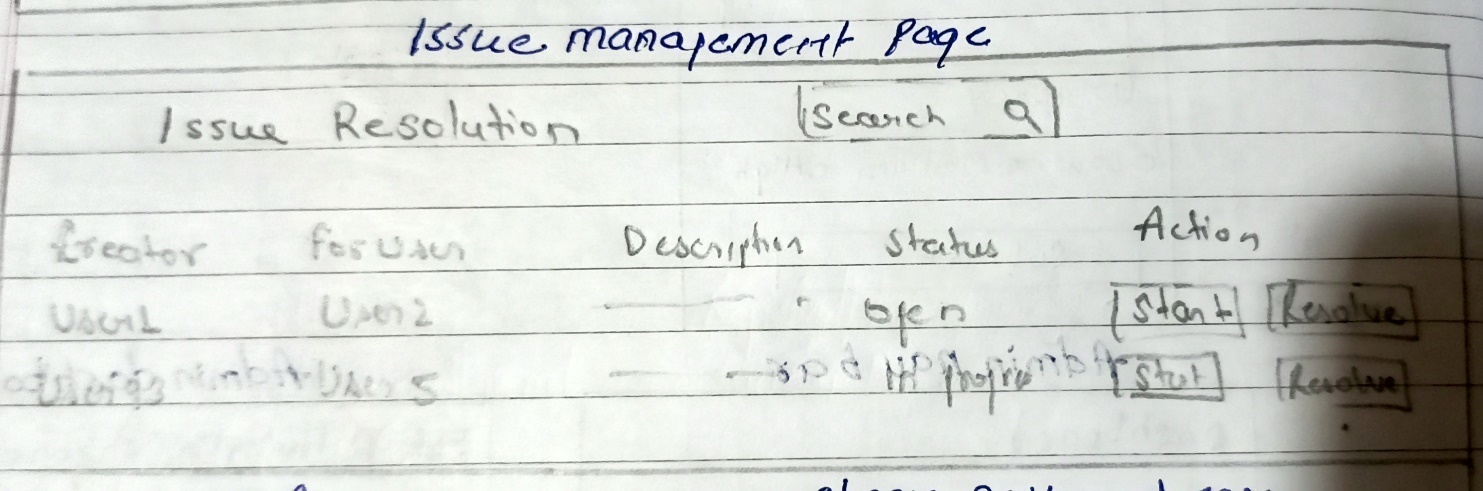 Issue management Page
Issue Resolution Search
Creator For User Description Status Action
User1 User2 open Start Resolve
User 5 Start Resolve